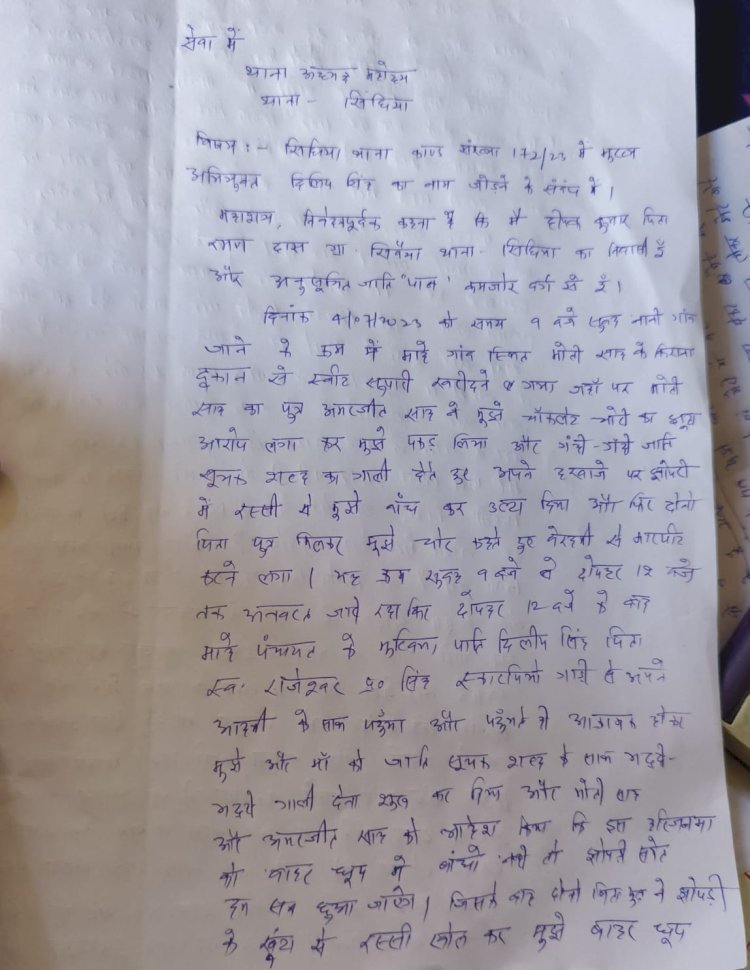 सेवा में
थाना अध्यक्ष महोदय
थाना - सिंघिया
विषय :- सिंघिया थाना काण्ड संख्या 172/23 में मुख्य
अभियुक्त दिलिप सिंह का नाम जोड़ने के संबंध में।
महाशय, निवेदनपूर्वक कहना है कि मैं कुमार पिता
दास ग्रा. थाना - सिंघिया का निवासी हूँ
और अनुसूचित जाति "पान" कमजोर वर्ग से हूँ।
दिनांक 4/07/2023 को समय 9 बजे सुबह नानी गांव
जाने के क्रम में माहे गांव स्थित मोती साह के किराना
दुकान से स्वीट सुपारी खरीदने गया जहाँ पर मोती
साह का पुत्र अमरजीत साह ने मुझे चॉकलेट चोरी का झूठा
आरोप लगा कर मुझे पकड़ लिया और गंदी-गंदी जाति
सूचक शब्द का गाली देते हुए अपने दरवाजे पर झोपरी
में रस्सी से मुझे बाँध कर उल्टा दिया और फिर दोनो
पिता पुत्र मिलकर मुझे चोर कहते हुए बेरहमी से मारपीट
करने लगा। यह क्रम सुबह 9 बजे से दोपहर 12 बजे
तक अनवरत जारी रहा फिर दोपहर 12 बजे के बाद
माहे पंचायत के मुखिया पति दिलीप सिंह पिता
स्व. राजेश्वर प्र० सिंह स्कारपियो गाड़ी से अपने
आदमी के साथ पहुँचा और पहुँचते ही होकर
मुझे और माँ को जाति सूचक शब्द के साथ भद्दे-
भद्दे गाली देना शुरू कर दिया और मोती साह
और अमरजीत साह को आदेश किया कि इस
को बाहर धूप में बांधो नही तो झोपरी सहित
हम सब छुआ जाएंगे। जिसके बाद दोनो पिता पुत्र ने झोपड़ी
के खूंटा से रस्सी खोल कर मुझे बाहर धूप